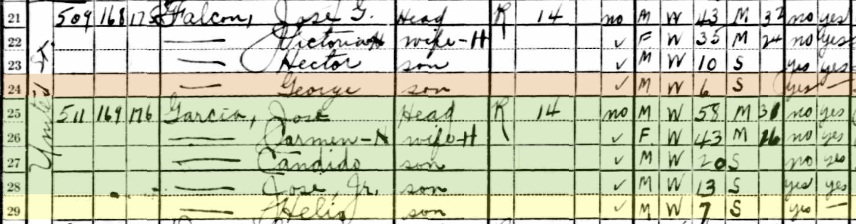 21 509 168 175 Falcon, Jose G. Head R 14 no M W 43 M 32 no yes
22 — Victoria H wife-H ✓ F W 35 M 24 no yes
23 — Hector son ✓ M W 10 S yes yes
24 — George son ✓ M W 6 S yes —
25 511 169 176 Garcia, Jose Head R 14 no M W 58 M 31 no yes
26 — Carmen-H wife-H ✓ F W 43 M 16 no yes
27 — Candido son ✓ M W 20 S no yes
28 — Jose, Jr. son ✓ M W 13 S yes yes
29 — Helio son ✓ M W 7 S yes —